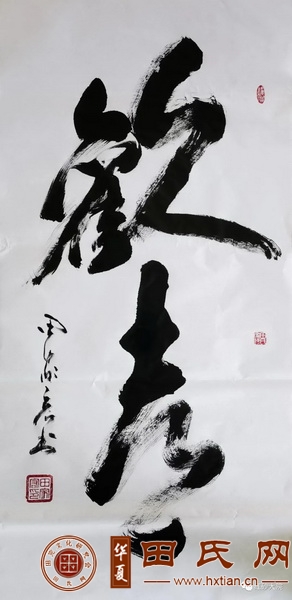 歡喜
田
书
华夏
田氏网
www.hxtian.cn